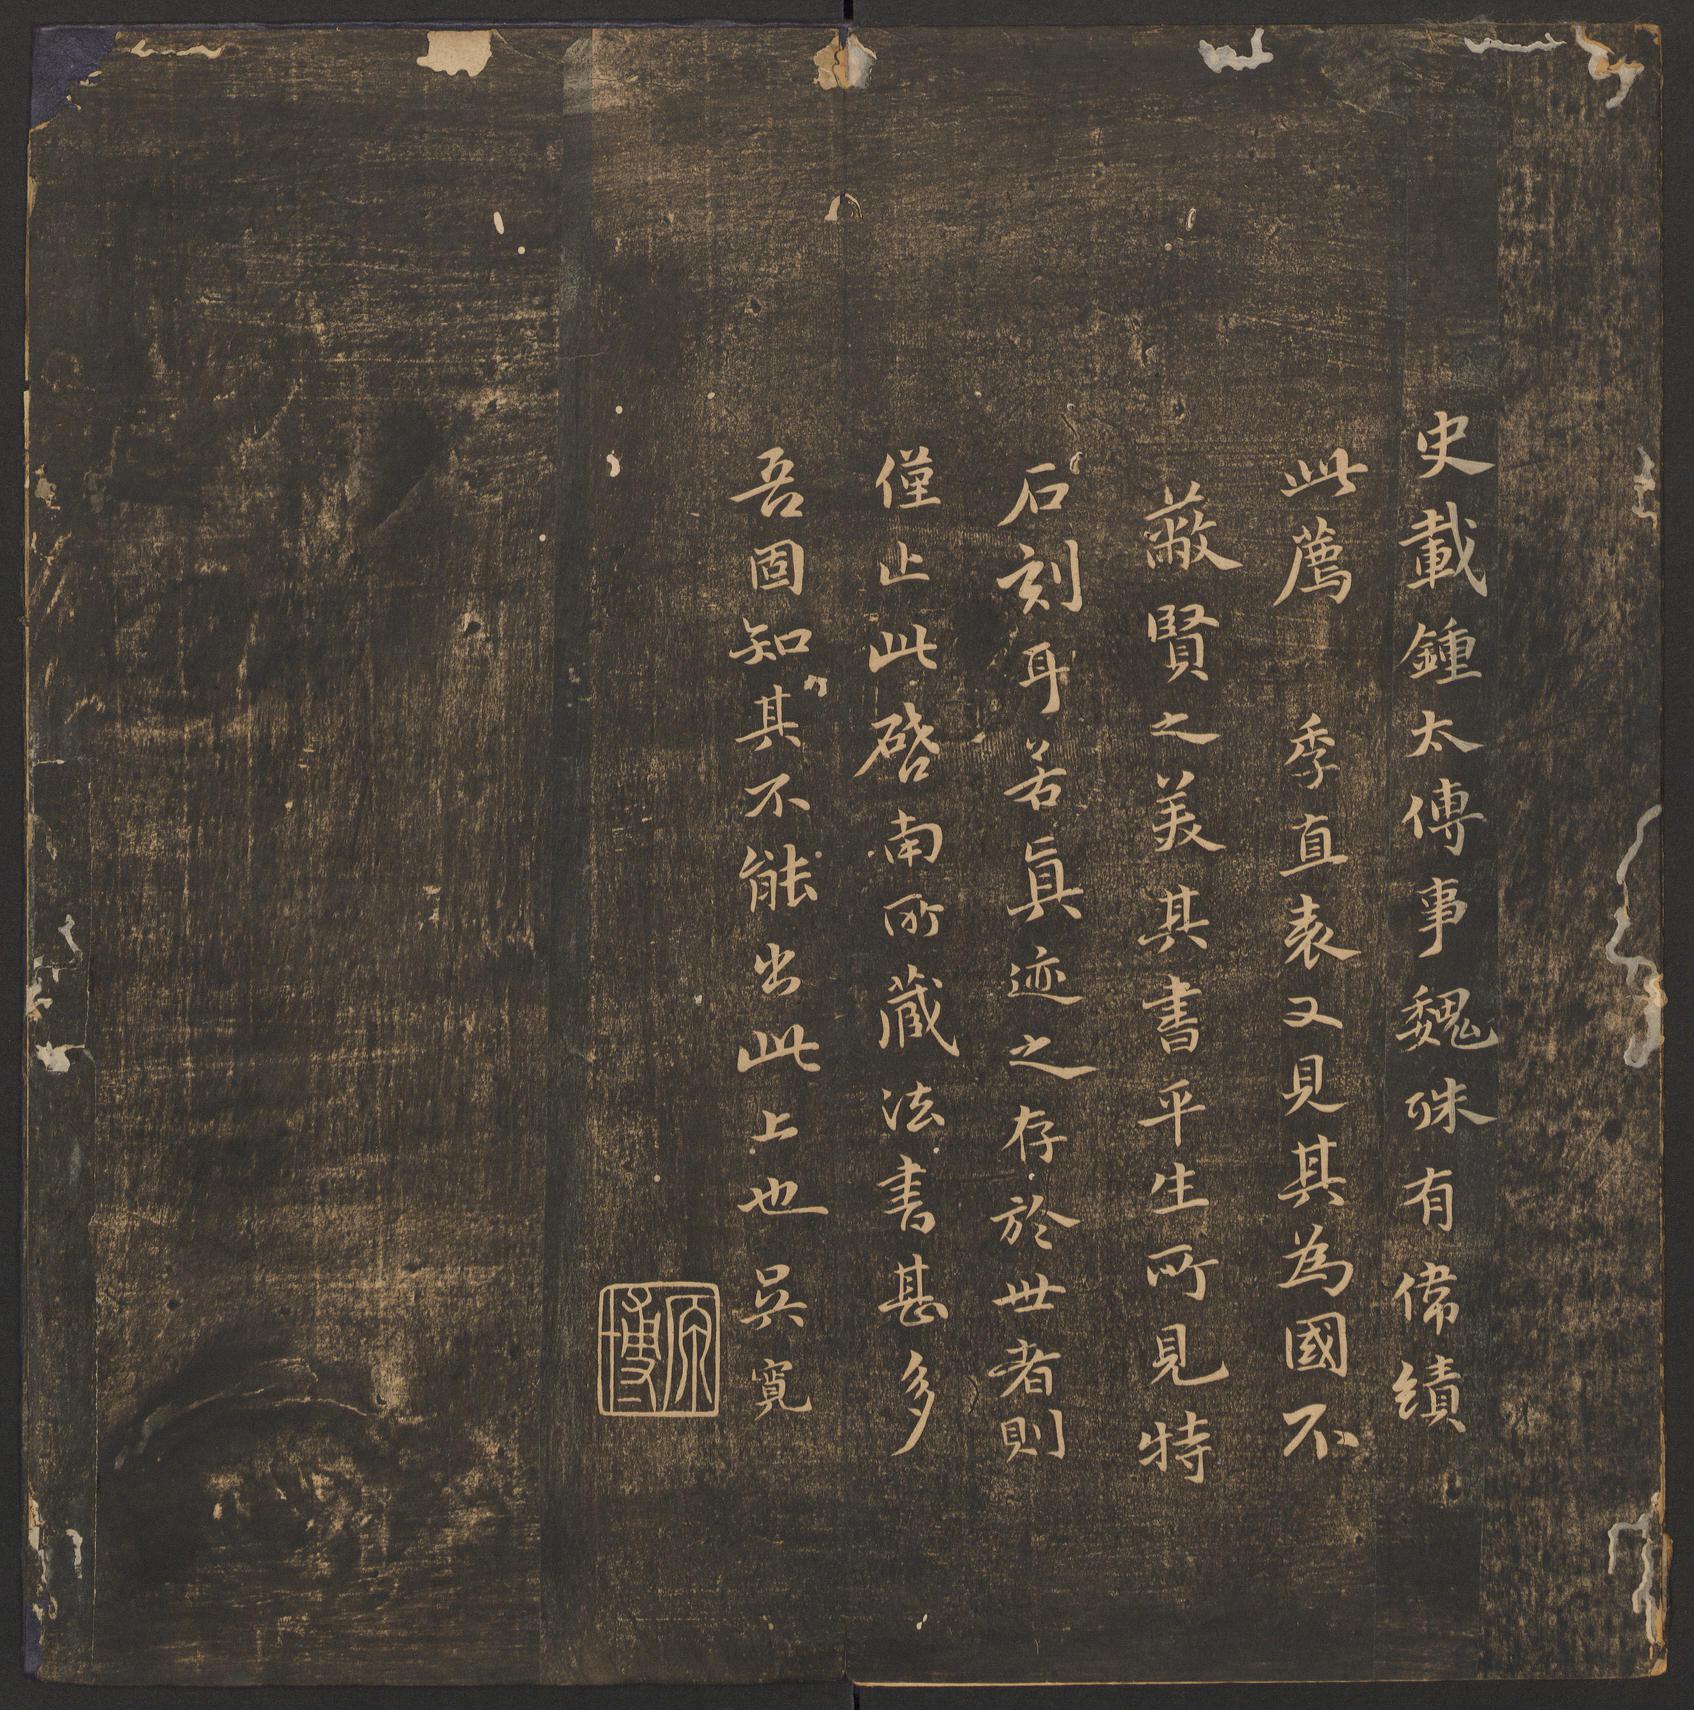 史載鍾太傅事魏殊有偉績
此薦季直表又見其為國不
蔽賢之美其書平生所見特
石刻耳若真迹之存於世者則
僅止此啓南所藏法書甚多
吾固知其不能出此上也吳寬
原博